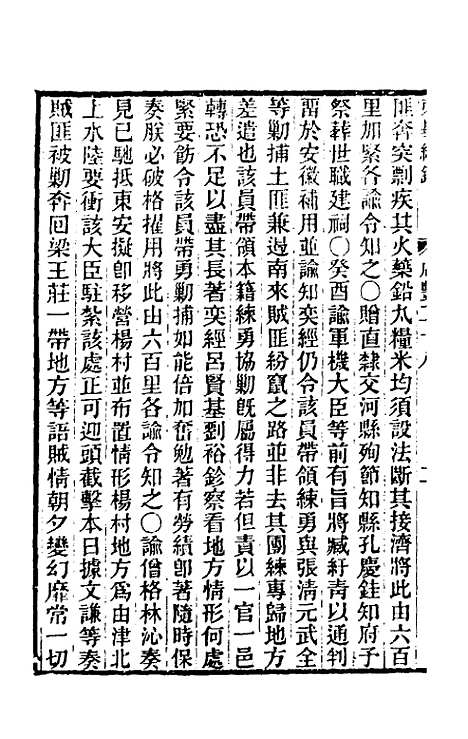 匪奔突剽疾其火藥鉛丸糧米均須設法斷其接濟將此由六百
里加緊各諭令知之〇贈直隸交河縣殉節知縣孔慶鍷知府子
祭葬世職建祠〇癸酉諭軍機大臣等前有旨將臧紆青以通判
留於安徽補用並諭知奕經仍令該員帶領練勇與張清元武全
等勦捕土匪兼遏南來賊匪紛竄之路並非去其團練專歸地方
差遣也該員帶領本籍練勇協勦旣屬得力若但責以一官一邑
轉恐不足以盡其長著奕經呂賢基劉裕鉁察看地方情形何處
緊要飭令該員帶勇勦捕如能倍加奮勉著有勞績卽著隨時保
奏朕必破格擢用將此由六百里各諭令知之〇諭僧格林沁奏
見已馳抵東安擬卽移營楊村並布置情形楊村地方爲由津北
上水陸要衝該大臣駐紮該處正可迎頭截擊本日據文謙等奏
賊匪被勦奔回梁王莊一帶地方等語賊情朝夕變幻靡常一切